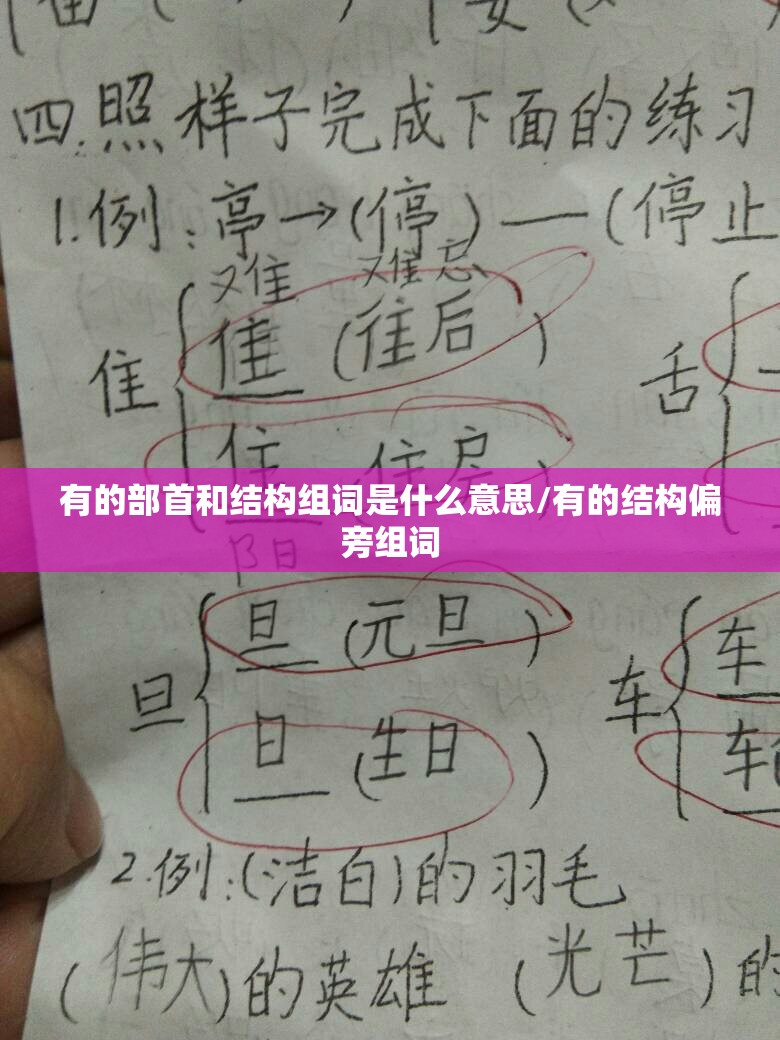 四.照样子完成下面的练习
1.例:亭→(停)—(停止
难 难忘
隹 (往后)
隹 舌
住 住房
有的部首和结构组词是什么意思/有的结构偏
旁组词
阳
旦 (元旦)
旦 车 车
日 (生日) 车
2.例:(洁白)的羽毛
(伟大)的英雄 (光芒)的